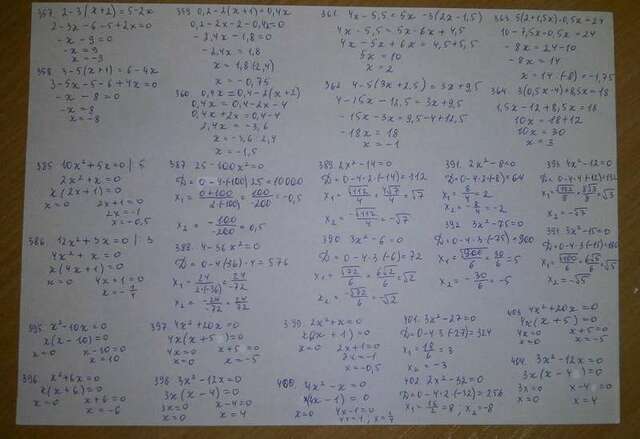 357. 2-3(x+2)=5-2x
2-3x-6-5+2x=0
-x-9=0
-x=9
x=-9
358. 3-5(x+1)=6-4x
3-5x-5-6+4x=0
-x-8=0
-x=8
x=-8
359. 0,2-2(x+1)=0,4x
0,2-2x-2-0,4x=0
-2,4x-1,8=0
-2,4x=1,8
x=1,8:(2,4)
x=-0,75
360. 0,4x=0,4-2(x+2)
0,4x=0,4-2x-4
0,4x+2x=0,4-4
2,4x=-3,6
x=-3,6:2,4
x=-1,5
361. 4x-5,5=5x-3(2x-1,5)
4x-5,5=5x-6x+4,5
4x-5x+6x=4,5+5,5
5x=10
x=2
362. 4-5(3x+2,5)=3x+9,5
4-15x-12,5=3x+9,5
-15x-3x=9,5-4+12,5
-18x=18
x=-1
363. 5(2+1,5x)-0,5x=24
10-7,5x-0,5x=24
-8x=24-10
-8x=14
x=14:(-8)=-1,75
364. 3(0,5x-4)+8,5x=18
1,5x-12+8,5x=18
10x=18+12
10x=30
x=3
385. 10x²+5x=0 | 5
2x²+x=0
x(2x+1)=0
x=0 2x+1=0
2x=-1
x=-0,5
386. 12x²+3x=0 | 3
4x²+x=0
x(4x+1)=0
x=0 4x+1=0
x=-1/4
387. 25-100x²=0
D=0-4·(-100)·25=10000
x₁=0+100/2·(-100)=100/-200=-0,5
x₂=-100/-200=0,5
388. 4-36x²=0
D=0-4·(36)·4=576
x₁=24/2·(-36)=24/-72
x₂=-24/-72=24/72
389. 2x²-14=0
D=0-4·2·(-14)=112
x₁=√112/4=4√7/4=√7
x₂=-√112/4=-√7
390. 3x²-6=0
D=0-4·3·(-6)=72
x₁=√72/6=6√2/6=√2
x₂=-√72/6=-√2
391. 2x²-8=0
D=0-4·2·(-8)=64
x₁=8/4=2
x₂=-8/4=-2
392. 3x²-75=0
D=0-4·3·(-75)=900
x₁=√900/6=30/6=5
x₂=-30/6=-5
393. 4x²-12=0
D=0-4·4·(-12)=192
x₁=√192/8=8√3/8=√3
x₂=-√3
3x²-15=0
D=0-4·3·(-15)=180
x₁=√180/6=6√5/6=√5
x₂=-√5
395. x²-10x=0
x(x-10)=0
x=0 x-10=0
x=10
396. x²+6x=0
x(x+6)=0
x=0 x+6=0
x=-6
397. 4x²+20x=0
4x(x+5)=0
4x=0 x+5=0
x=0 x=-5
398. 3x²-12x=0
3x(x-4)=0
3x=0 x-4=0
x=0 x=4
399. 2x²+x=0
x(2x+1)=0
x=0 2x+1=0
2x=-1
x=-0,5
400. 4x²-x=0
x(4x-1)=0
x=0 4x-1=0
4x=1, x=1/4
401. 3x²-27=0
D=0-4·3·(-27)=324
x₁=18/6=3
x₂=-3
402. 2x²-32=0
D=0-4·2·(-32)=256
=8, x₂=-8
403. 4x²+20x=0
4x(x+5)=0
4x=0 x+5=0
x=0 x=-5
404. 3x²-12x=0
3x(x-4)=0
3x=0 x-4=0
x=0 x=4